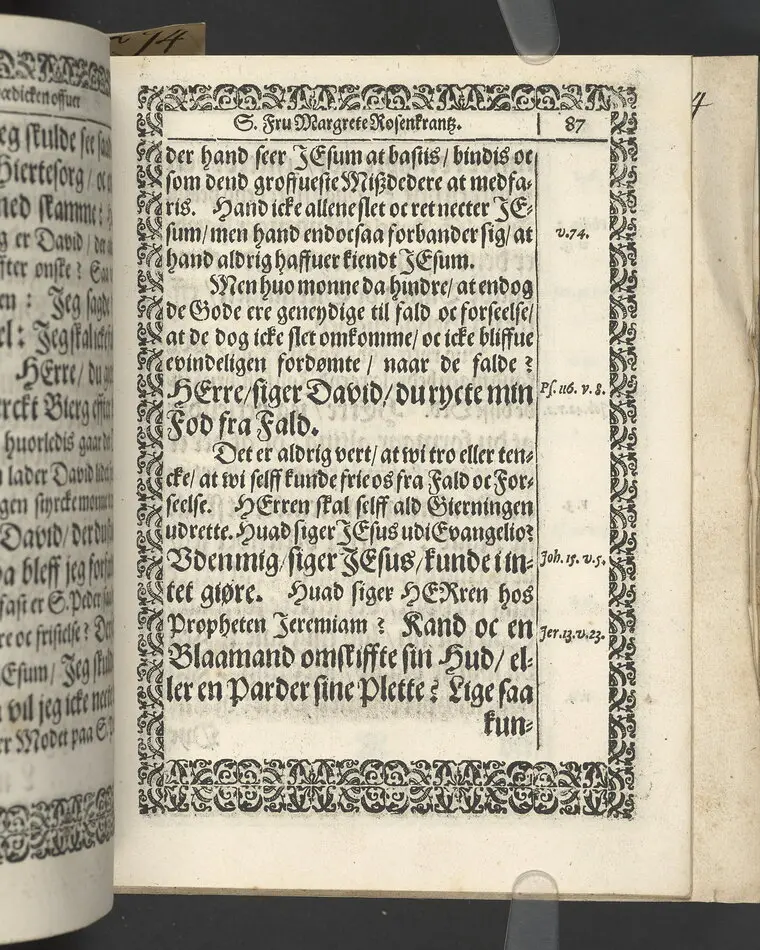 14
S. Fru Margrete Rosenkrantz.
87
der hand seer JEsum at bastis/ bindis oc
som dend groffueste Mißdedere at medfa-
ris. Hand icke allene slet oc ret necter JE-
sum/ men hand endocsaa forbander sig/ at
v.74.
hand aldrig haffuer kiendt JEsum.
Men huo monne da hindre/ at endog
de Gode ere geneydige til fald oc forseelse/
at de dog icke slet omkomme/ oc icke bliffue
evindeligen fordømte/ naar de falde?
HErre/ siger David/ du rycte min
Ps. 116. v. 8.
Fod fra Fald.
Det er aldrig vert/ at wi tro eller ten-
cke/ at wi selff kunde frie os fra Fald oc For-
seelse. HErren skal selff ald Gierningen
udrette. Huad siger JEsus udi Evangelio?
Vden mig/ siger JEsus/ kunde i in-
Joh. 15. v. 5.
tet giøre. Huad siger HERren hos
Propheten Jeremiam? Kand oc en
Jer. 13. v. 23.
Blaamand omskiffte sin Hud/ el-
ler en Parder sine Plette? Lige saa
kun-
eg skulde see
Hiertesorg/ oc
med skamme?
er David/
ffter ønske? Saa
en: Jeg sagde
el: Jeg skal icke
HErre/ du
rckt Bierg
huorledis gaar
lader David
gen styrcke monne
David/ der du
a bleff jeg
fast er S. Peder
re oc fristelse?
Esum/ Jeg skulde
vil jeg icke
er Modet paa S.
4